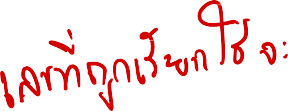 เลขที่ถูกเรียกใช้จะ